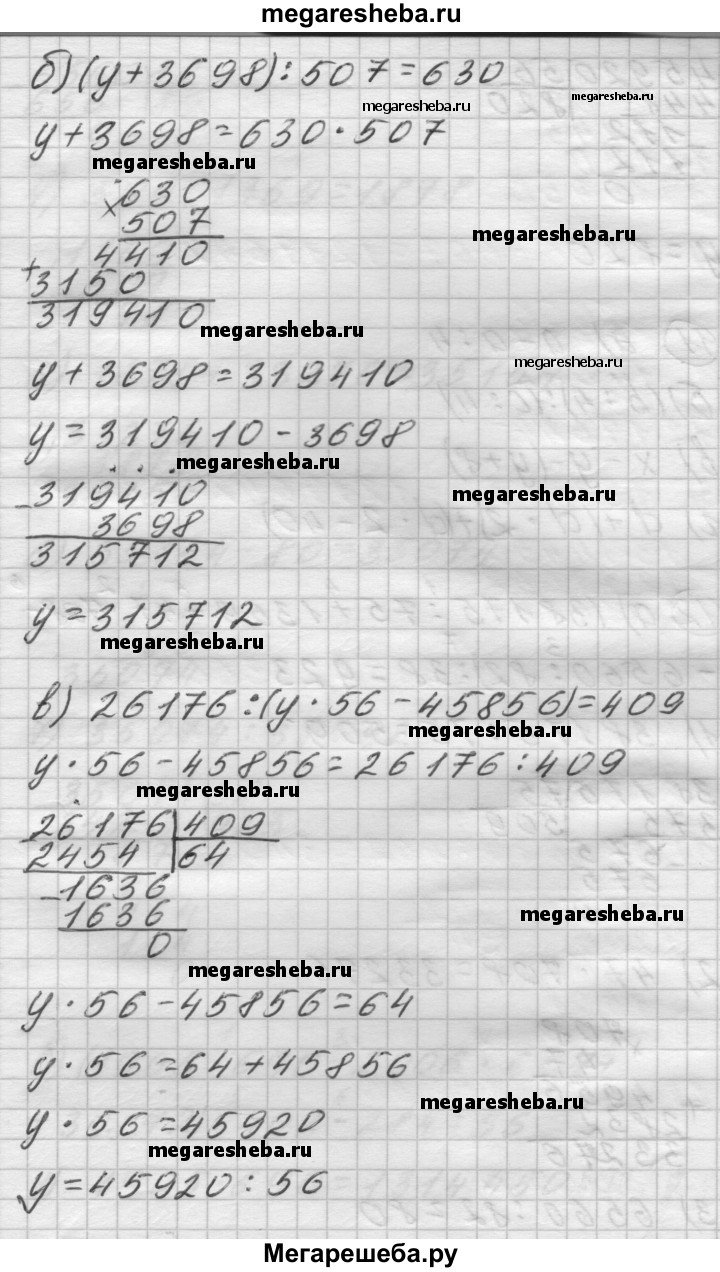 megaresheba.ru
б) (у + 3698) : 507 = 630
megaresheba.ru
megaresheba.ru
у + 3698 = 630 · 507
megaresheba.ru
× 630
507
megaresheba.ru
4410
+ 3150
319410
megaresheba.ru
у + 3698 = 319410
megaresheba.ru
у = 319410 - 3698
megaresheba.ru
- 319410
megaresheba.ru
3698
315712
у = 315712
megaresheba.ru
в) 26176 : (у · 56 - 45856) = 409
megaresheba.ru
у · 56 - 45856 = 26176 : 409
megaresheba.ru
- 26176 | 409
2454 | 64
- 1636
1636
megaresheba.ru
0
megaresheba.ru
у · 56 - 45856 = 64
у · 56 = 64 + 45856
megaresheba.ru
у · 56 = 45920
megaresheba.ru
у = 45920 : 56
Мегарешеба.ру